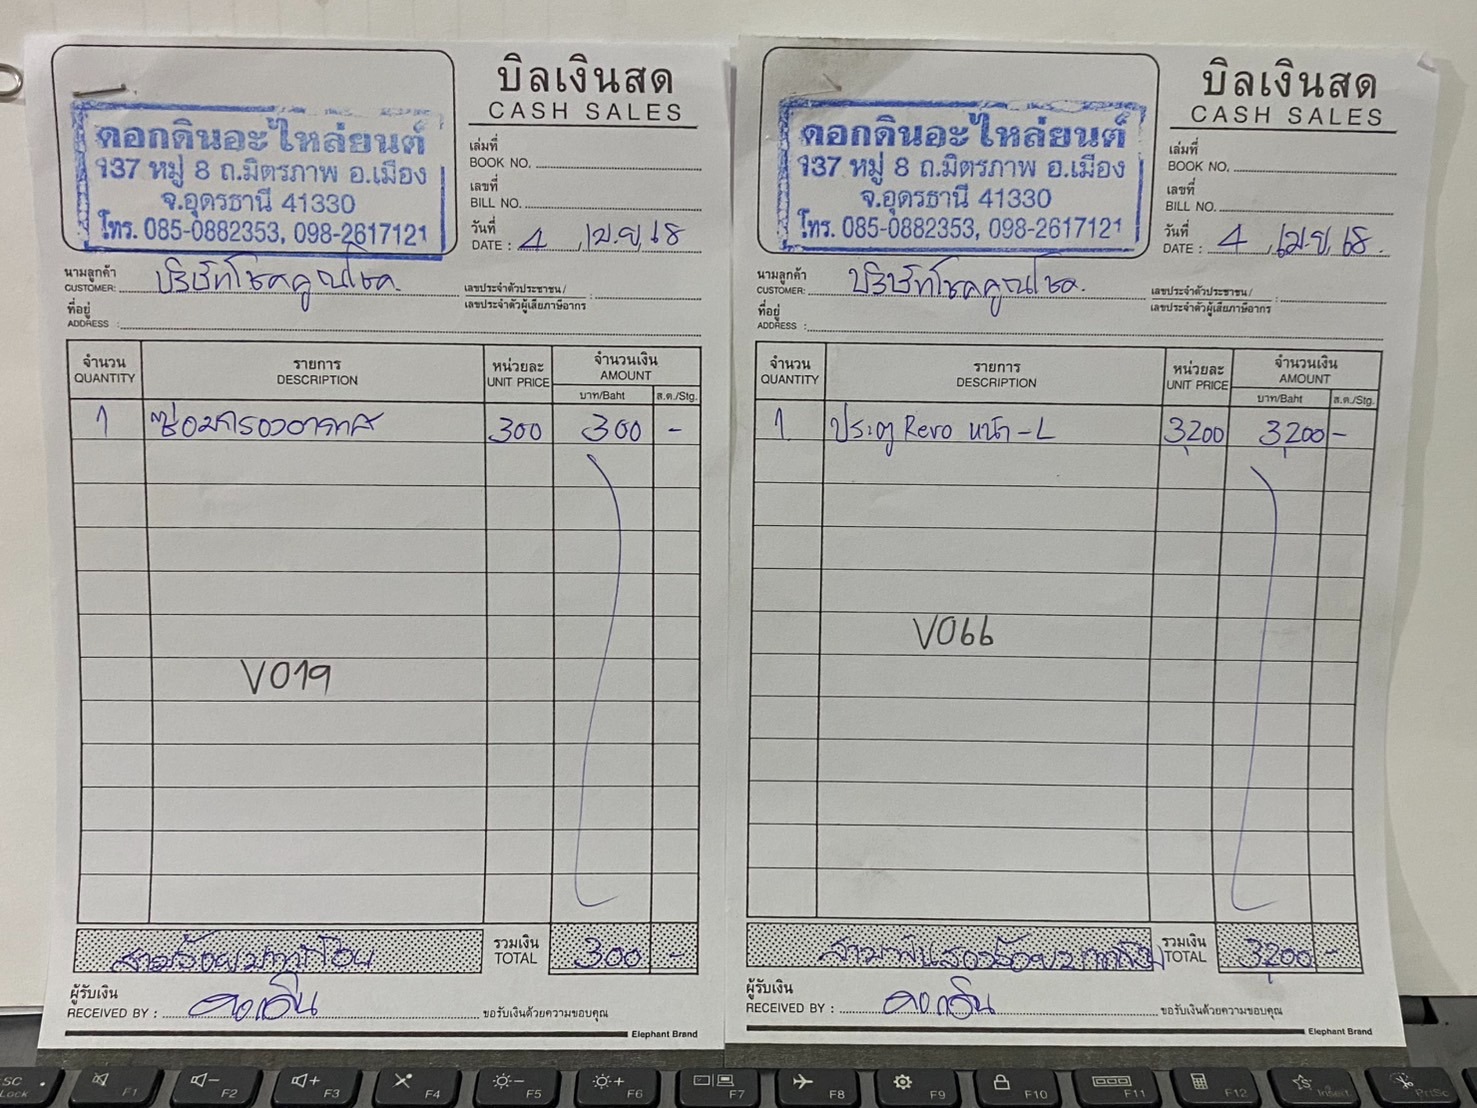 บิลเงินสด
CASH SALES
ดอกดินอะไหล่ยนต์
137 หมู่ 8 ถ.มิตรภาพ อ.เมือง
จ.อุดรธานี 41330
โทร. 085-0882353, 098-2617121
เล่มที่
BOOK NO.
เลขที่
BILL NO.
วันที่
DATE : 4 เม.ย. 68
นามลูกค้า
CUSTOMER: บริษัทโชคคูณโชค.
เลขประจำตัวประชาชน /
เลขประจำตัวผู้เสียภาษีอากร :
ที่อยู่
ADDRESS :
จำนวน รายการ หน่วยละ จำนวนเงิน
QUANTITY DESCRIPTION UNIT PRICE AMOUNT
บาท/Baht ส.ต./Stg.
1 300 300 -
V019
สามร้อยบาทถ้วน รวมเงิน
TOTAL 300 -
ผู้รับเงิน
RECEIVED BY : ดอกดิน ขอรับเงินด้วยความขอบคุณ
Elephant Brand
บิลเงินสด
CASH SALES
ดอกดินอะไหล่ยนต์
137 หมู่ 8 ถ.มิตรภาพ อ.เมือง
จ.อุดรธานี 41330
โทร. 085-0882353, 098-2617121
เล่มที่
BOOK NO.
เลขที่
BILL NO.
วันที่
DATE : 4 เม.ย. 68.
นามลูกค้า
CUSTOMER: บริษัทโชคคูณโชค.
เลขประจำตัวประชาชน /
เลขประจำตัวผู้เสียภาษีอากร :
ที่อยู่
ADDRESS :
จำนวน รายการ หน่วยละ จำนวนเงิน
QUANTITY DESCRIPTION UNIT PRICE AMOUNT
บาท/Baht ส.ต./Stg.
1 ประตู Revo หน้า - L 3,200 3,200 -
V066
สามพันสองร้อยบาทถ้วน รวมเงิน
TOTAL 3,200 -
ผู้รับเงิน
RECEIVED BY : ดอกดิน ขอรับเงินด้วยความขอบคุณ
Elephant Brand
Lock F1 F2 F3 F4 F5 F6 F7 F8 F9 F10 F11 F12 Insert PrtSc